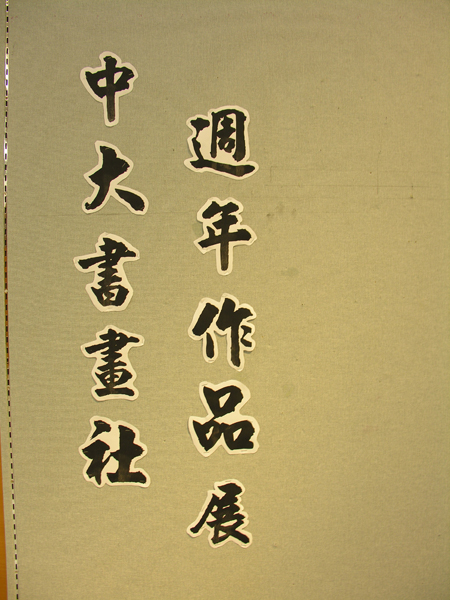 中大書畫社
週年作品展